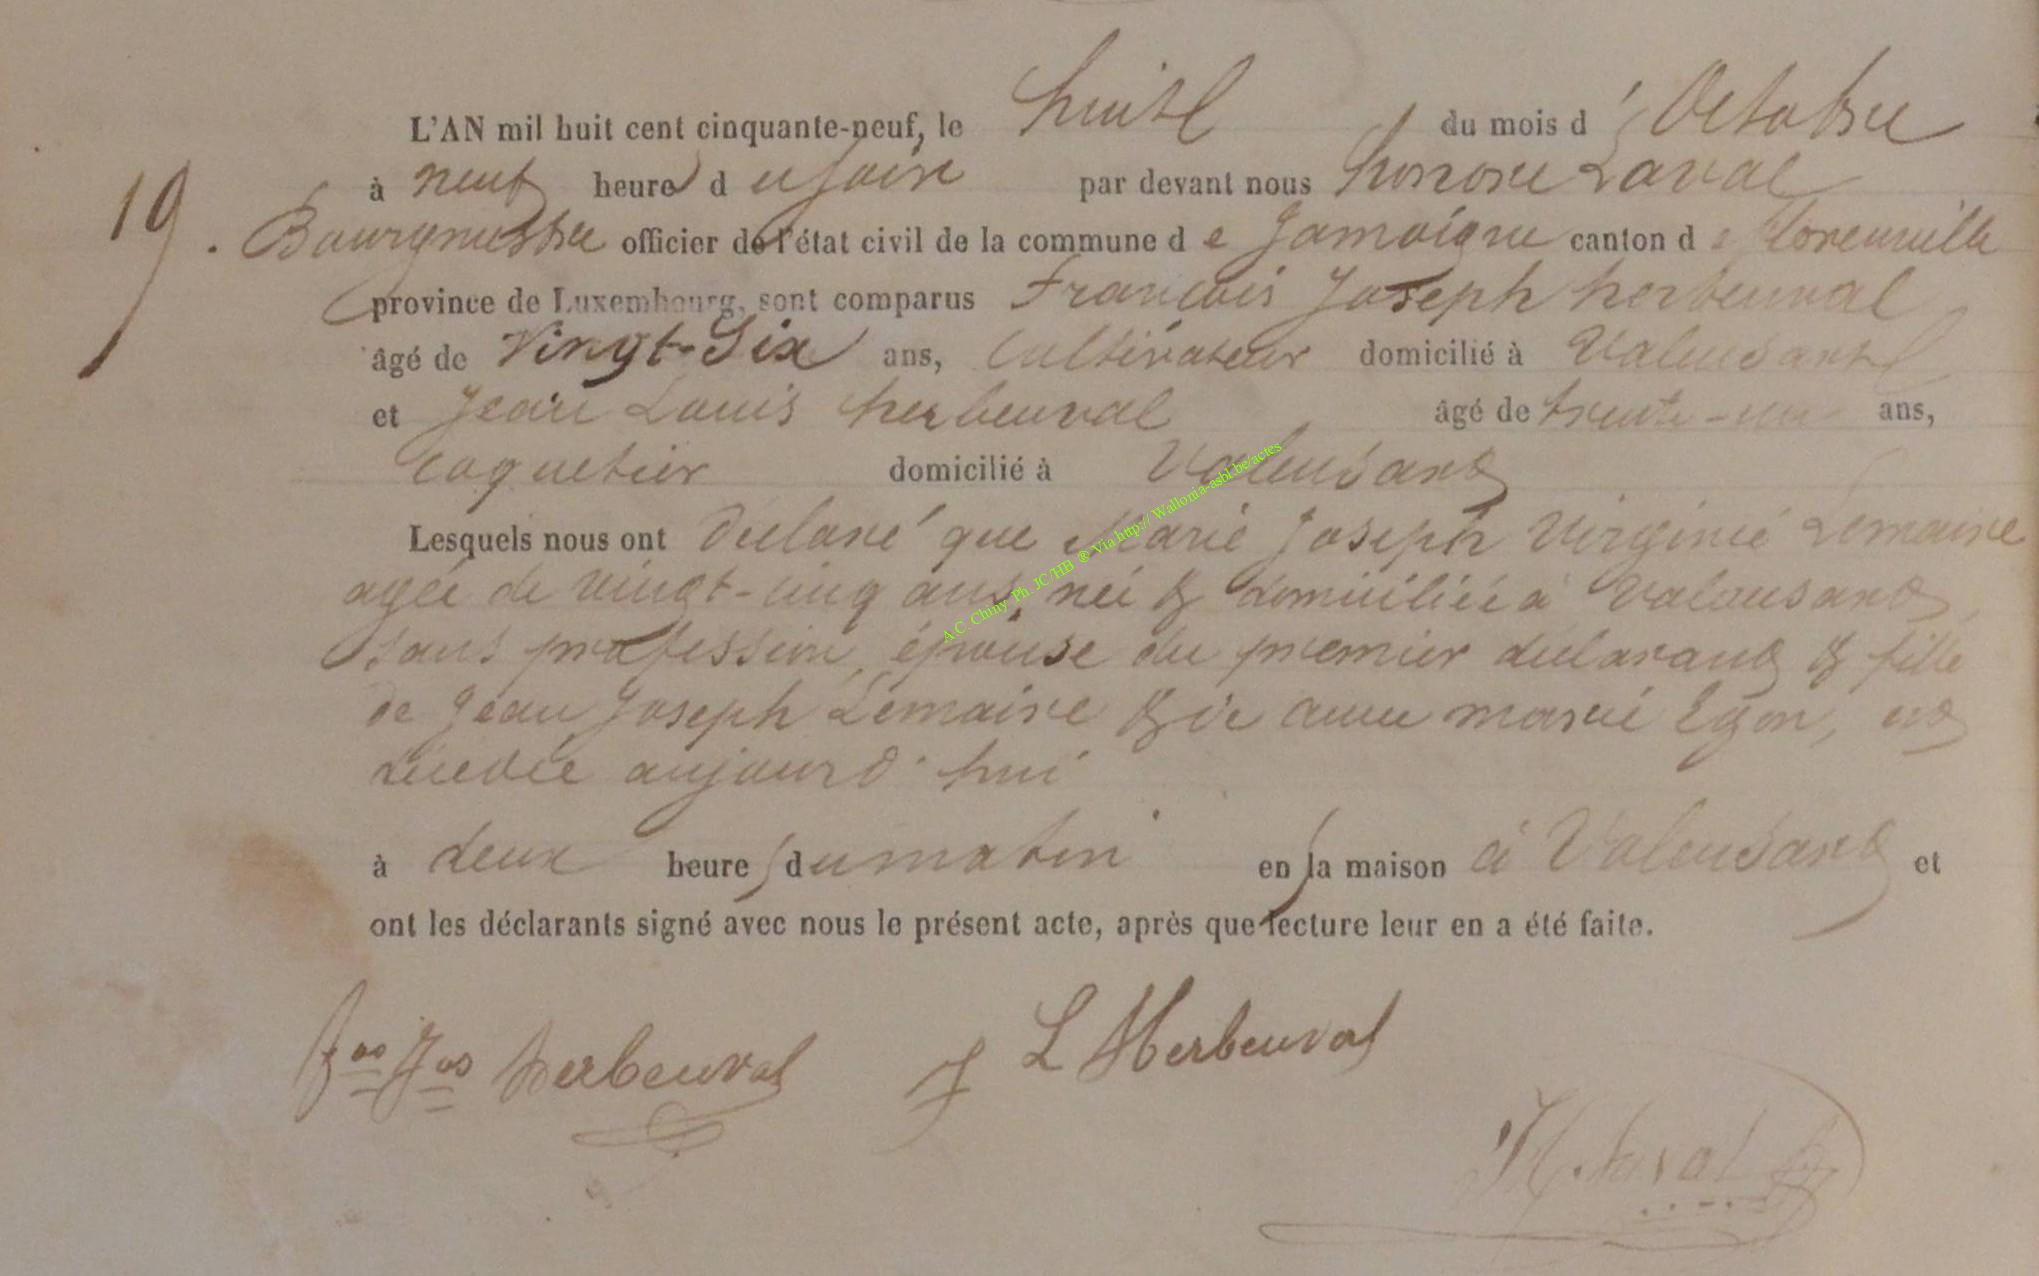 L'AN mil huit cent cinquante-neuf, le huit du mois d'Octobre
à neuf heure d u soir par devant nous honoré Laval
19. Bourgmestre officier de l'état civil de la commune d e Jamoigne canton d e florenville
province de Luxembourg, sont comparus François Joseph herbeuval
âgé de Vingt-Six ans, Cultivateur domicilié à Valensart
et Jean Louis herbeuval âgé de trente-un ans,
Coquetier domicilié à Valensart
Lesquels nous ont déclaré que Marie Joseph Virginie Lemaire
agée de vingt-cinq ans, née & domiciliée à Valensart
sans profession, épouse du premier déclarant & fille
de Jean Joseph Lemaire & de anne marie Egon, est
décédée aujourd'hui
à deux heure du matin en la maison à Valensart et
ont les déclarants signé avec nous le présent acte, après que lecture leur en a été faite.
fos Jos herbeuval L Herbeuval
H. Laval
A.C. Chiny Ph. JC/HB ® Via http:// Wallonia-asbl.be/actes